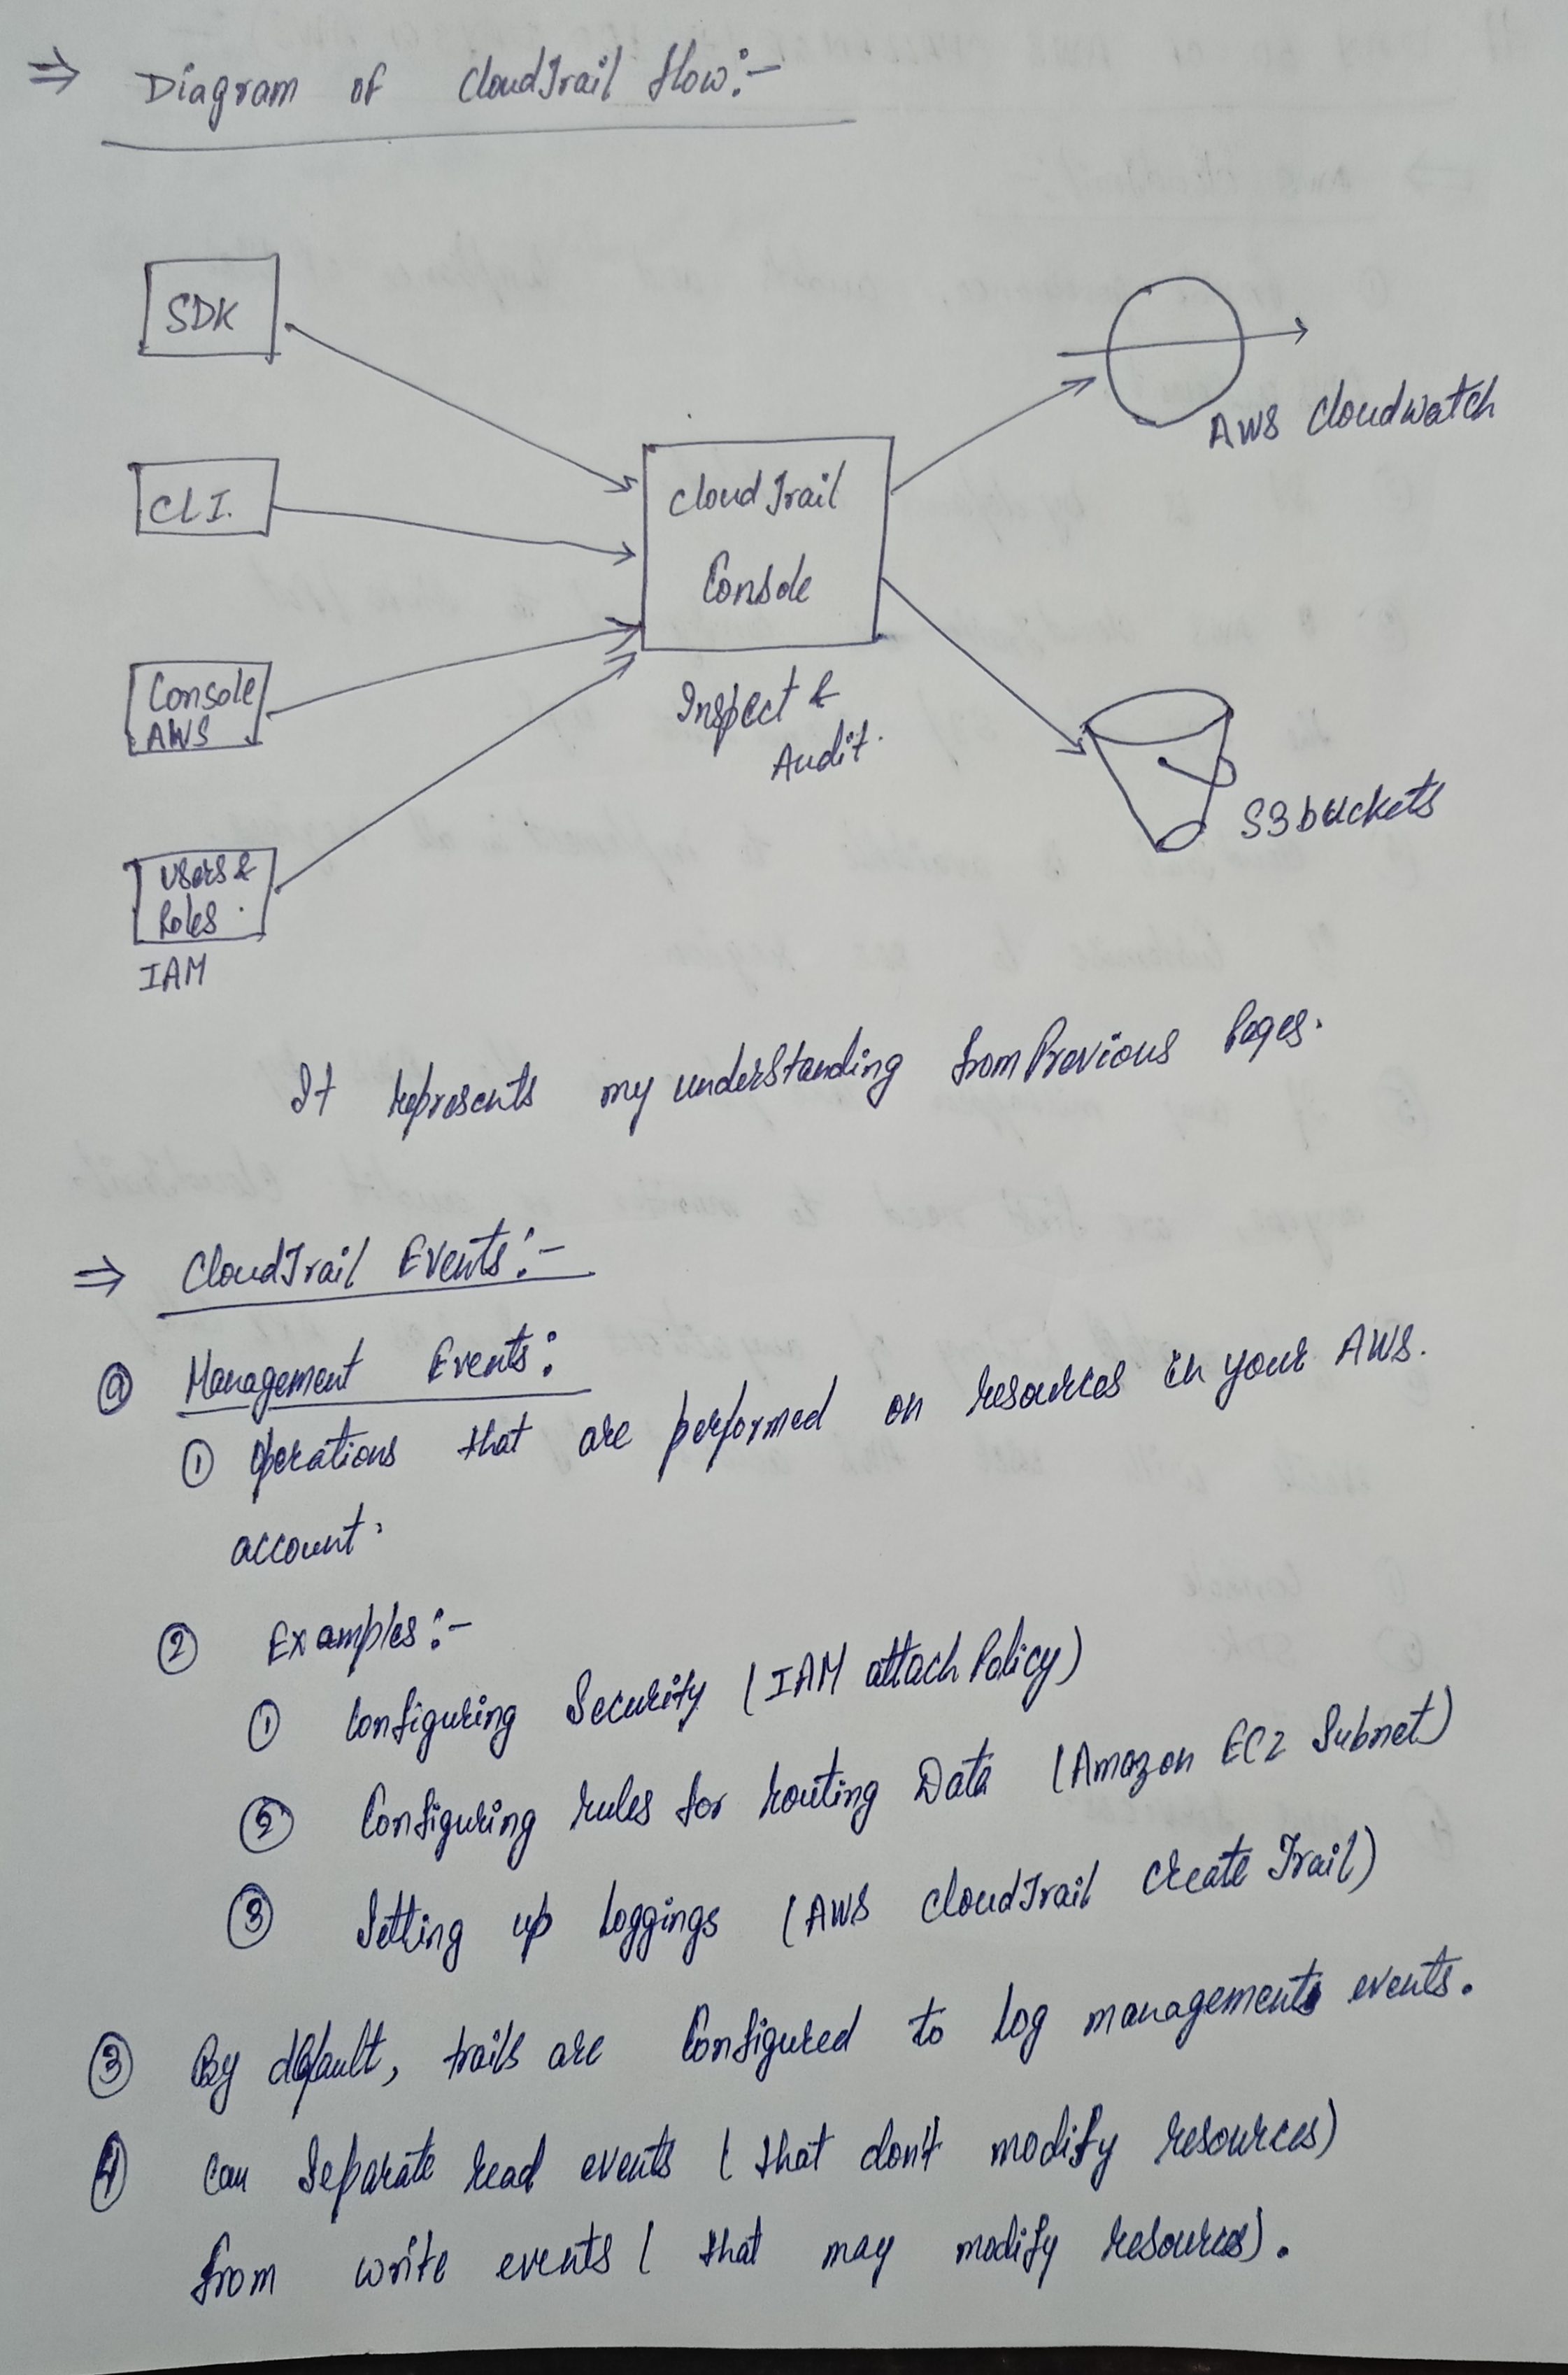 ⇒ Diagram of CloudTrail flow:-
SDK
CLI.
Console
AWS
Users &
Roles.
IAM
CloudTrail
Console
Inspect &
Audit.
AWS Cloudwatch
S3 buckets
It represents my understanding from Previous Pages.
⇒ CloudTrail Events:-
ⓐ Management Events:
① Operations that are performed on resources in your AWS.
account.
② Examples:-
① Configuring Security (IAM attach Policy)
② Configuring rules for routing Data (Amazon EC2 Subnet)
③ Setting up loggings (AWS CloudTrail Create Trail)
③ By default, trails are Configured to log managements events.
④ Can Separate read events (that don't modify resources)
from write events (that may modify resources).